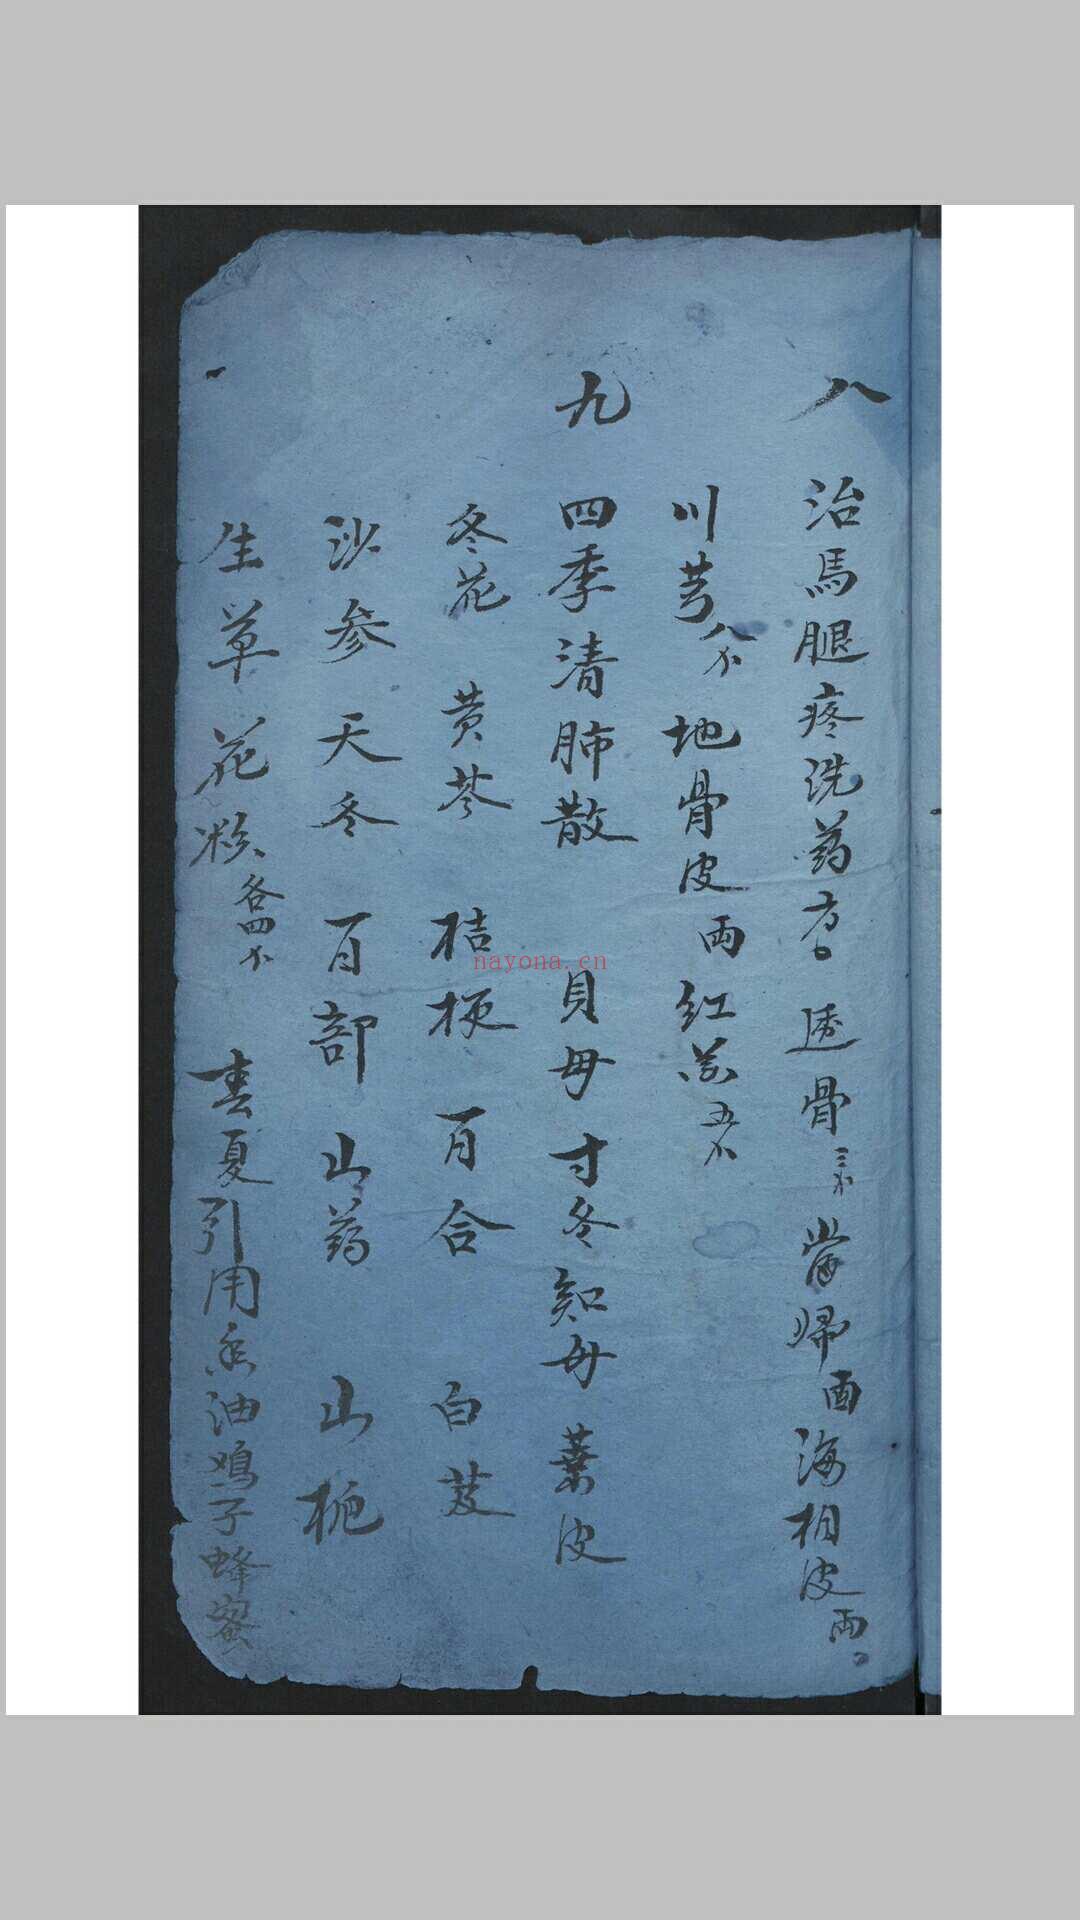 八 治馬腿疼洗药方 透骨三不 當歸両 海相皮両
川芎八不 地骨皮両 红花五不
九 四季清肺散 貝母 寸冬 知母 葉皮
冬花 黄芩 桔梗 百合 白芨
沙参 天冬 百部 山药 山栀
生草 花粉各四不 春夏引用香油鸡子蜂蜜
nayona.cn